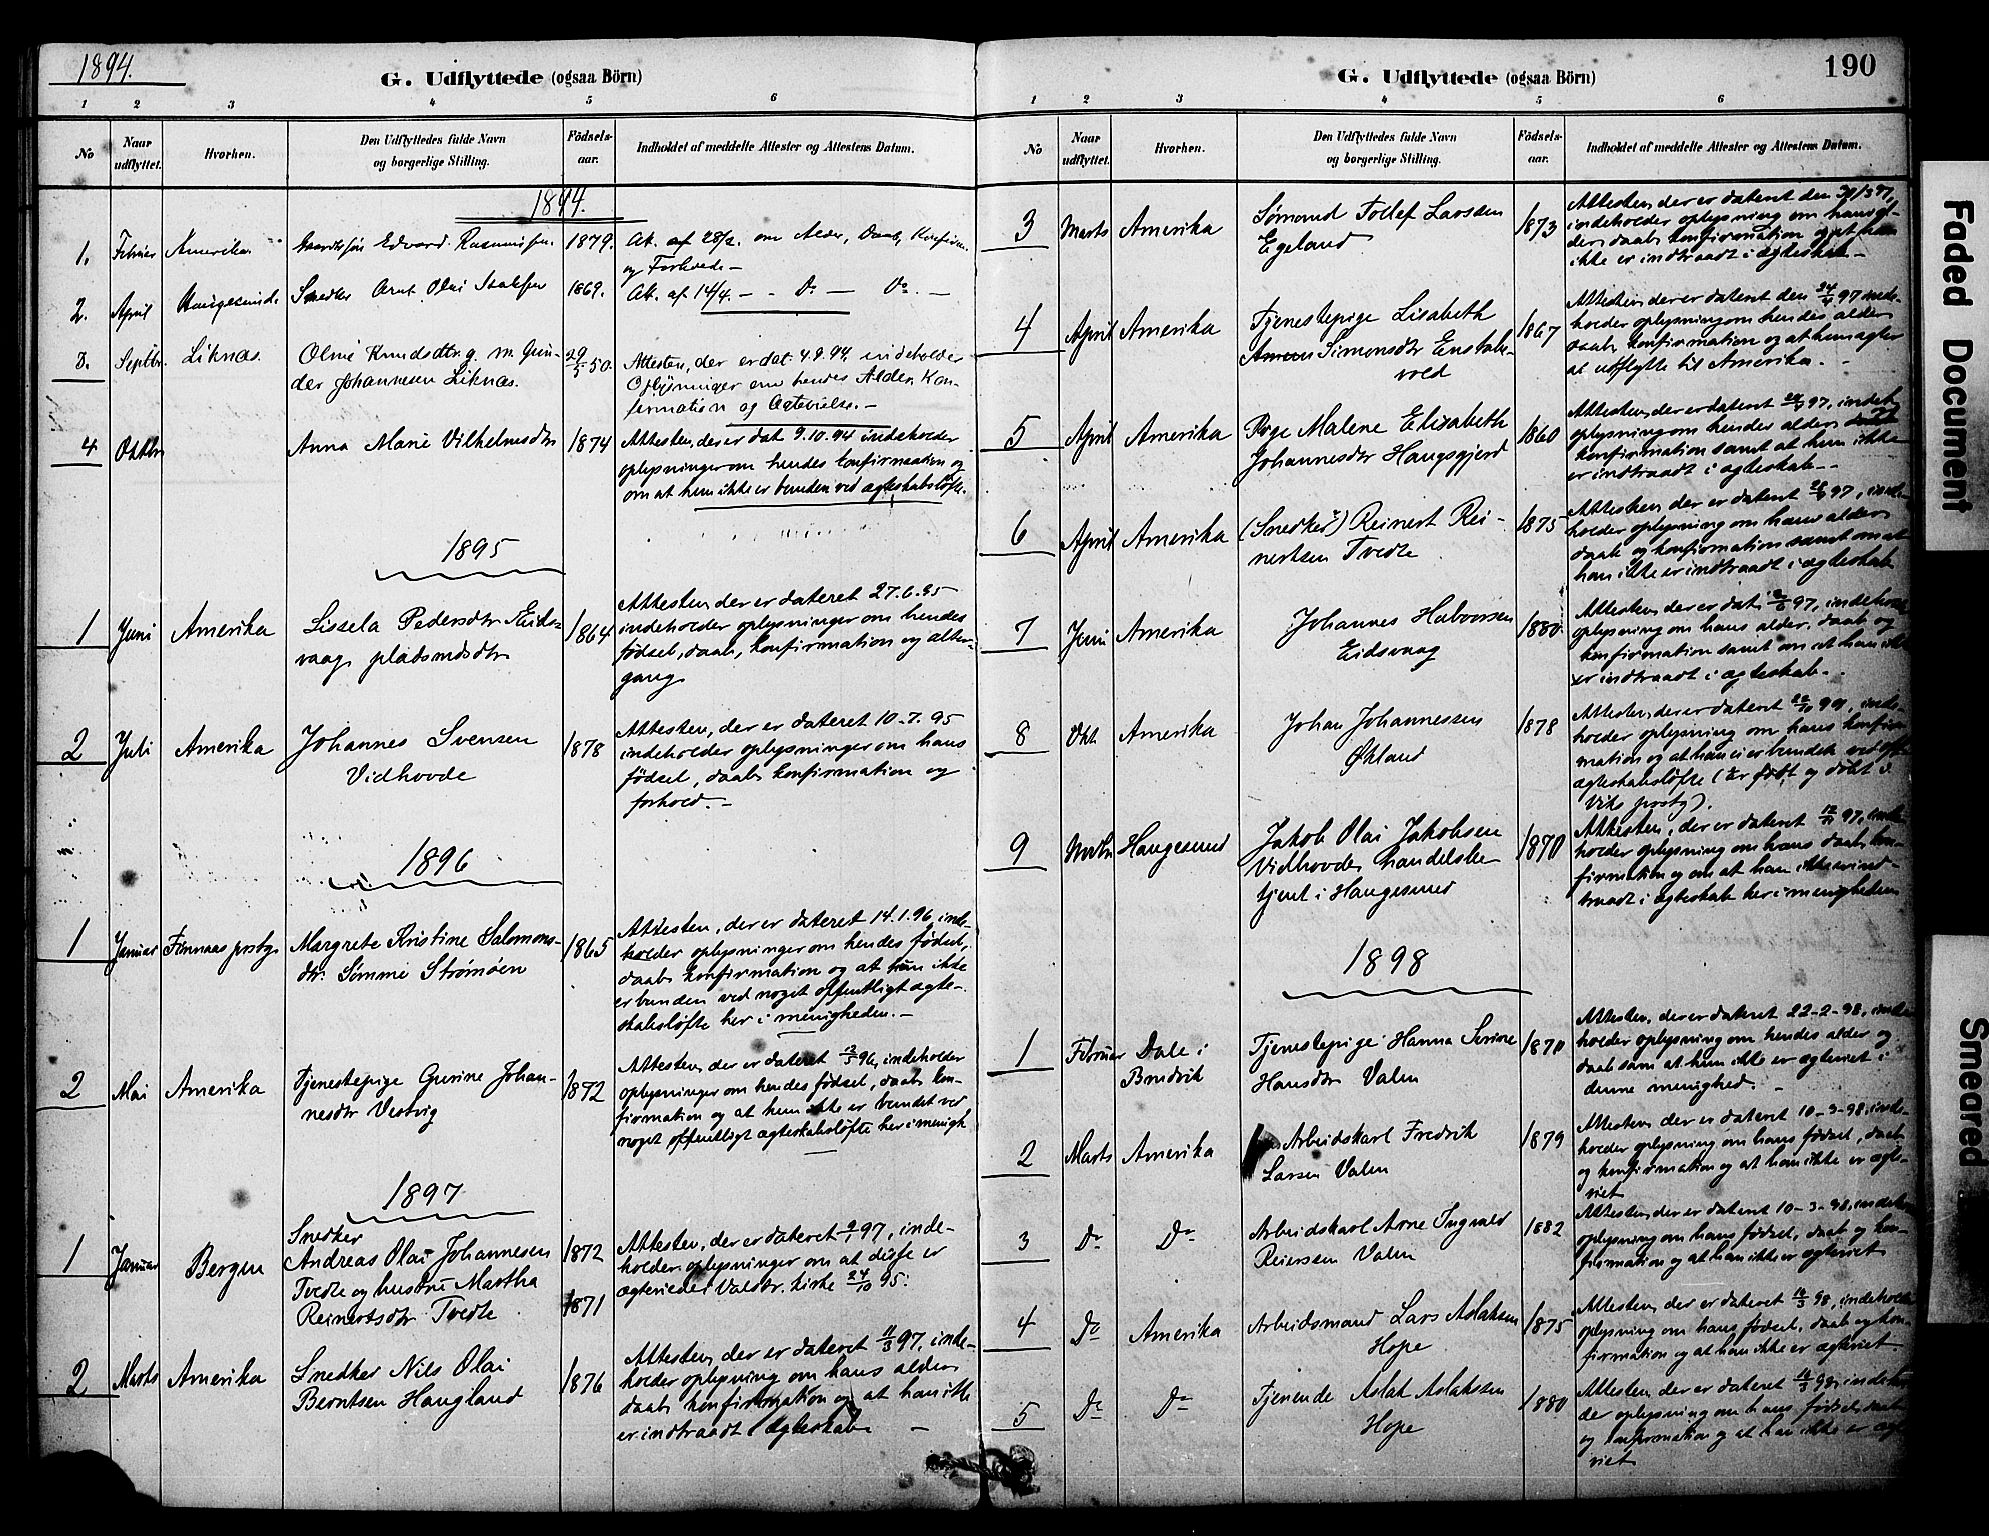 1894.
G. Udflyttede (ogsaa Börn)
1 2 3 4 5 6
No
Naar udflyttet.
Hvorhen.
Den Udflyttedes fulde Navn
og borgerlige Stilling.
Födsels-
aar.
Indholdet af meddelte Attester og Attestens Datum.
1894.
1. Februar Amerika. Edvard Rasmussen. 1879. Att. af 28/2. om Alder, Daab, Konfirm.
og Forhold. –
2. April Haugesund. Snedker Arnt Olai 1869. Att. af 14/4. – - Do – Do. –
3. Septbr. Liknæs. Oline Knudsdtr. g. m. Gun- 29/5 50. Attesten, der er dat. 4.9.94. indeholder
der Johannesen Liknæs. Oplysninger om hendes Alder, Kon-
firmation og Ægtevielse. –
4 Oktbr Anna Marie Vilhelmsdtr 1874 Attesten, der er dat. 9.10.94 indeholder
oplysninger om hendes konfirmation og
om at hun ikke er bunden ved ægteskabsløfte.
1895
1 Juni Amerika Lissela Pedersdtr Eids- 1864 Attesten, der er dateret 27.6.95
vaag, pladsmdsdtr indeholder oplysninger om hendes
fødsel, daab, konfirmation og alter-
gang
2 Juli Amerika Johannes Svensen 1878 Attesten, der er dateret 10-7.95
Vidhovde indeholder oplysninger om hans
fødsel, daab, konfirmation og
forhold. –
1896
1 Januar Finnaas prstgj. Margrete Kristine Salomons- 1865 Attesten, der er dateret 14.1.96, inde-
dtr. Sømme Strømøen holder oplysninger om hendes fødsel,
daab, konfirmation og at hun ikke
er bunden ved noget offentligt ægte-
skabsløfte her i menigheden. –
2 Mai Amerika Tjenestepige Gurine Johan- 1872 Attesten, der er dateret 12/5 96, indeholder
nesdtr Vestvig oplysninger om hendes fødsel, daab, kon-
firmation og at hun ikke er bundet ved
noget offentligt ægteskabsløfte her i menigh
1897
1 Januar Bergen Snedker
Andreas Olai Johannesen 1872 Attesten, der er dateret 9/1 97, inde-
Tvedte og hustru Martha holder oplysninger om at disse er
Reinertsdtr Tvedte 1871 ægteviede i Valestr. kirke 24/10 95.
2 Marts Amerika Snedker Nils Olai 1876 Attesten, der er dateret 11/3 97, inde-
Berntsen Haugland holder oplysning om hans alder,
daab, konfirmation og at han ikke
er indtraadt i ægteskab –
G. Udflyttede (ogsaa Börn)
190
1 2 3 4 5 6
No
Naar udflyttet.
Hvorhen.
Den Udflyttedes fulde Navn
og borgerlige Stilling.
Födsels-
aar.
Indholdet af meddelte Attester og Attestens Datum.
3 Marts Amerika Sømand Tollef Larssen 1873 Attesten, der er dateret den
Egeland indeholder oplysning om hans al-
der, daab, konfirmation og at han
ikke er indtraadt i ægteskab –
4 April Amerika Tjenestepige Lisabeth 1867 Attesten, der er dateret den 24/4 97 inde-
Simonsdtr Enstab- holder oplysning om hendes alder
vold daab, konfirmation og at hun agter
at udflytte til Amerika. –
5 April Amerika Pige Malene Elisabeth 1860 Attesten, der er dateret 97, indeh.
Johannesdtr Haugsgjerd oplysning om hendes alder,
konfirmation samt at hun ikke
er indtraadt i ægteskab –
6 April Amerika (Snedker) Reinert Rei- 1875 Attesten, der er dateret 97, inde-
nertsen Tvedte holder oplysning om hans alder
daab og konfirmation samt om at
han ikke er indtraadt i ægteskab
7 Juni Amerika Johannes Halvorsen 1880. Attesten, der er dat. 97, indehold
Eidsvaag oplysning om hans alder, daab og
konfirmation samt om at han ikke
er indtraadt i ægteskab –
8 Okt. Amerika Johan Johannessen 1878 Attesten, der er dateret inde-
Økland holder oplysning om hans konfir-
mation og at han ei er bundet ved off.
ægteskabsløfte (Er født og døbt i
prstgj).
9 Novbr Haugesund Jakob Olai Jakobsen 1870 Attesten, der er dateret 97, inde-
Vidhovde, handelsbe- holder oplysning om hans daab, kon-
tjent i Haugesund firmation og om at han ikke er ind-
traadt i ægteskab her i menigheden
1898
1 Februar Dale i Tjenestepige Hanna Serine 1870 Attesten, der er dateret 22-2-98, inde
Bredvik Hansdtr Valen holder oplysning om hendes alder og
daab samt at hun ikke er ægteviet i
denne menighed. –
2 Marts Amerika Arbeidskarl Fredrik 1879 Attesten der er dateret 10-3-98, inde-
Larsen Valen holder oplysning om hans fødsel, daab
og konfirmation og at han ikke er ægte-
viet
3 Do Do Arbeidskarl Arne Ingvald 1882 Attesten, der er dateret 10-3-98, indeh
Reierssen Valen oplysning om hans fødsel, daab og kon-
firmation og at han ikke er ægteviet
4 Do Amerika Arbeidsmand Lars Aslaksen 1875 Attesten, der er dateret 16/3 98, indeholder
Hope oplysning om hans fødsel, daab og kon-
firmation og at han ikke er ægteviet
5 Do Do Tjenende Aslak Aslaksen 1880 Attesten, der er dateret 16/3 98, indehol
Hope der oplysning om hans fødsel, daab
og konfirmation og at han ikke er ægte
viet
Faded Document
Smeared